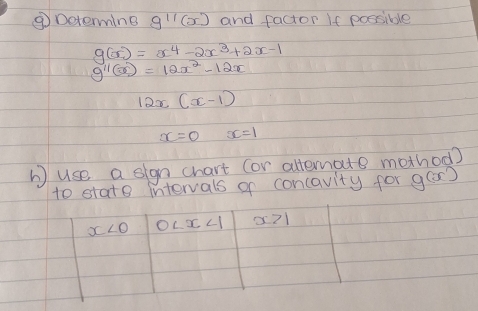 g) Determine g''(x) and factor if possible
g(x) = x⁴ - 2x³ + 2x - 1
g''(x) = 12x² - 12x
12x (x - 1)
x = 0 x = 1
h) use a sign chart (or alternate method)
to state intervals of concavity for g(x)
x < 0 0 < x < 1 x > 1